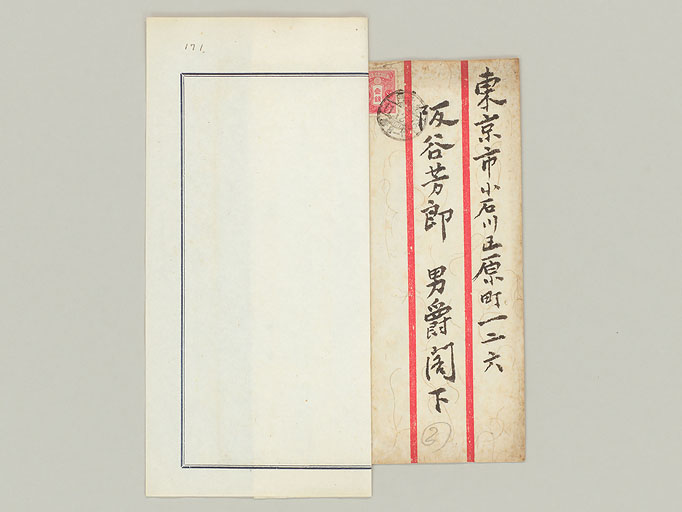 東京市小石川区原町一二六
阪谷芳郎 男爵閣下
2
171